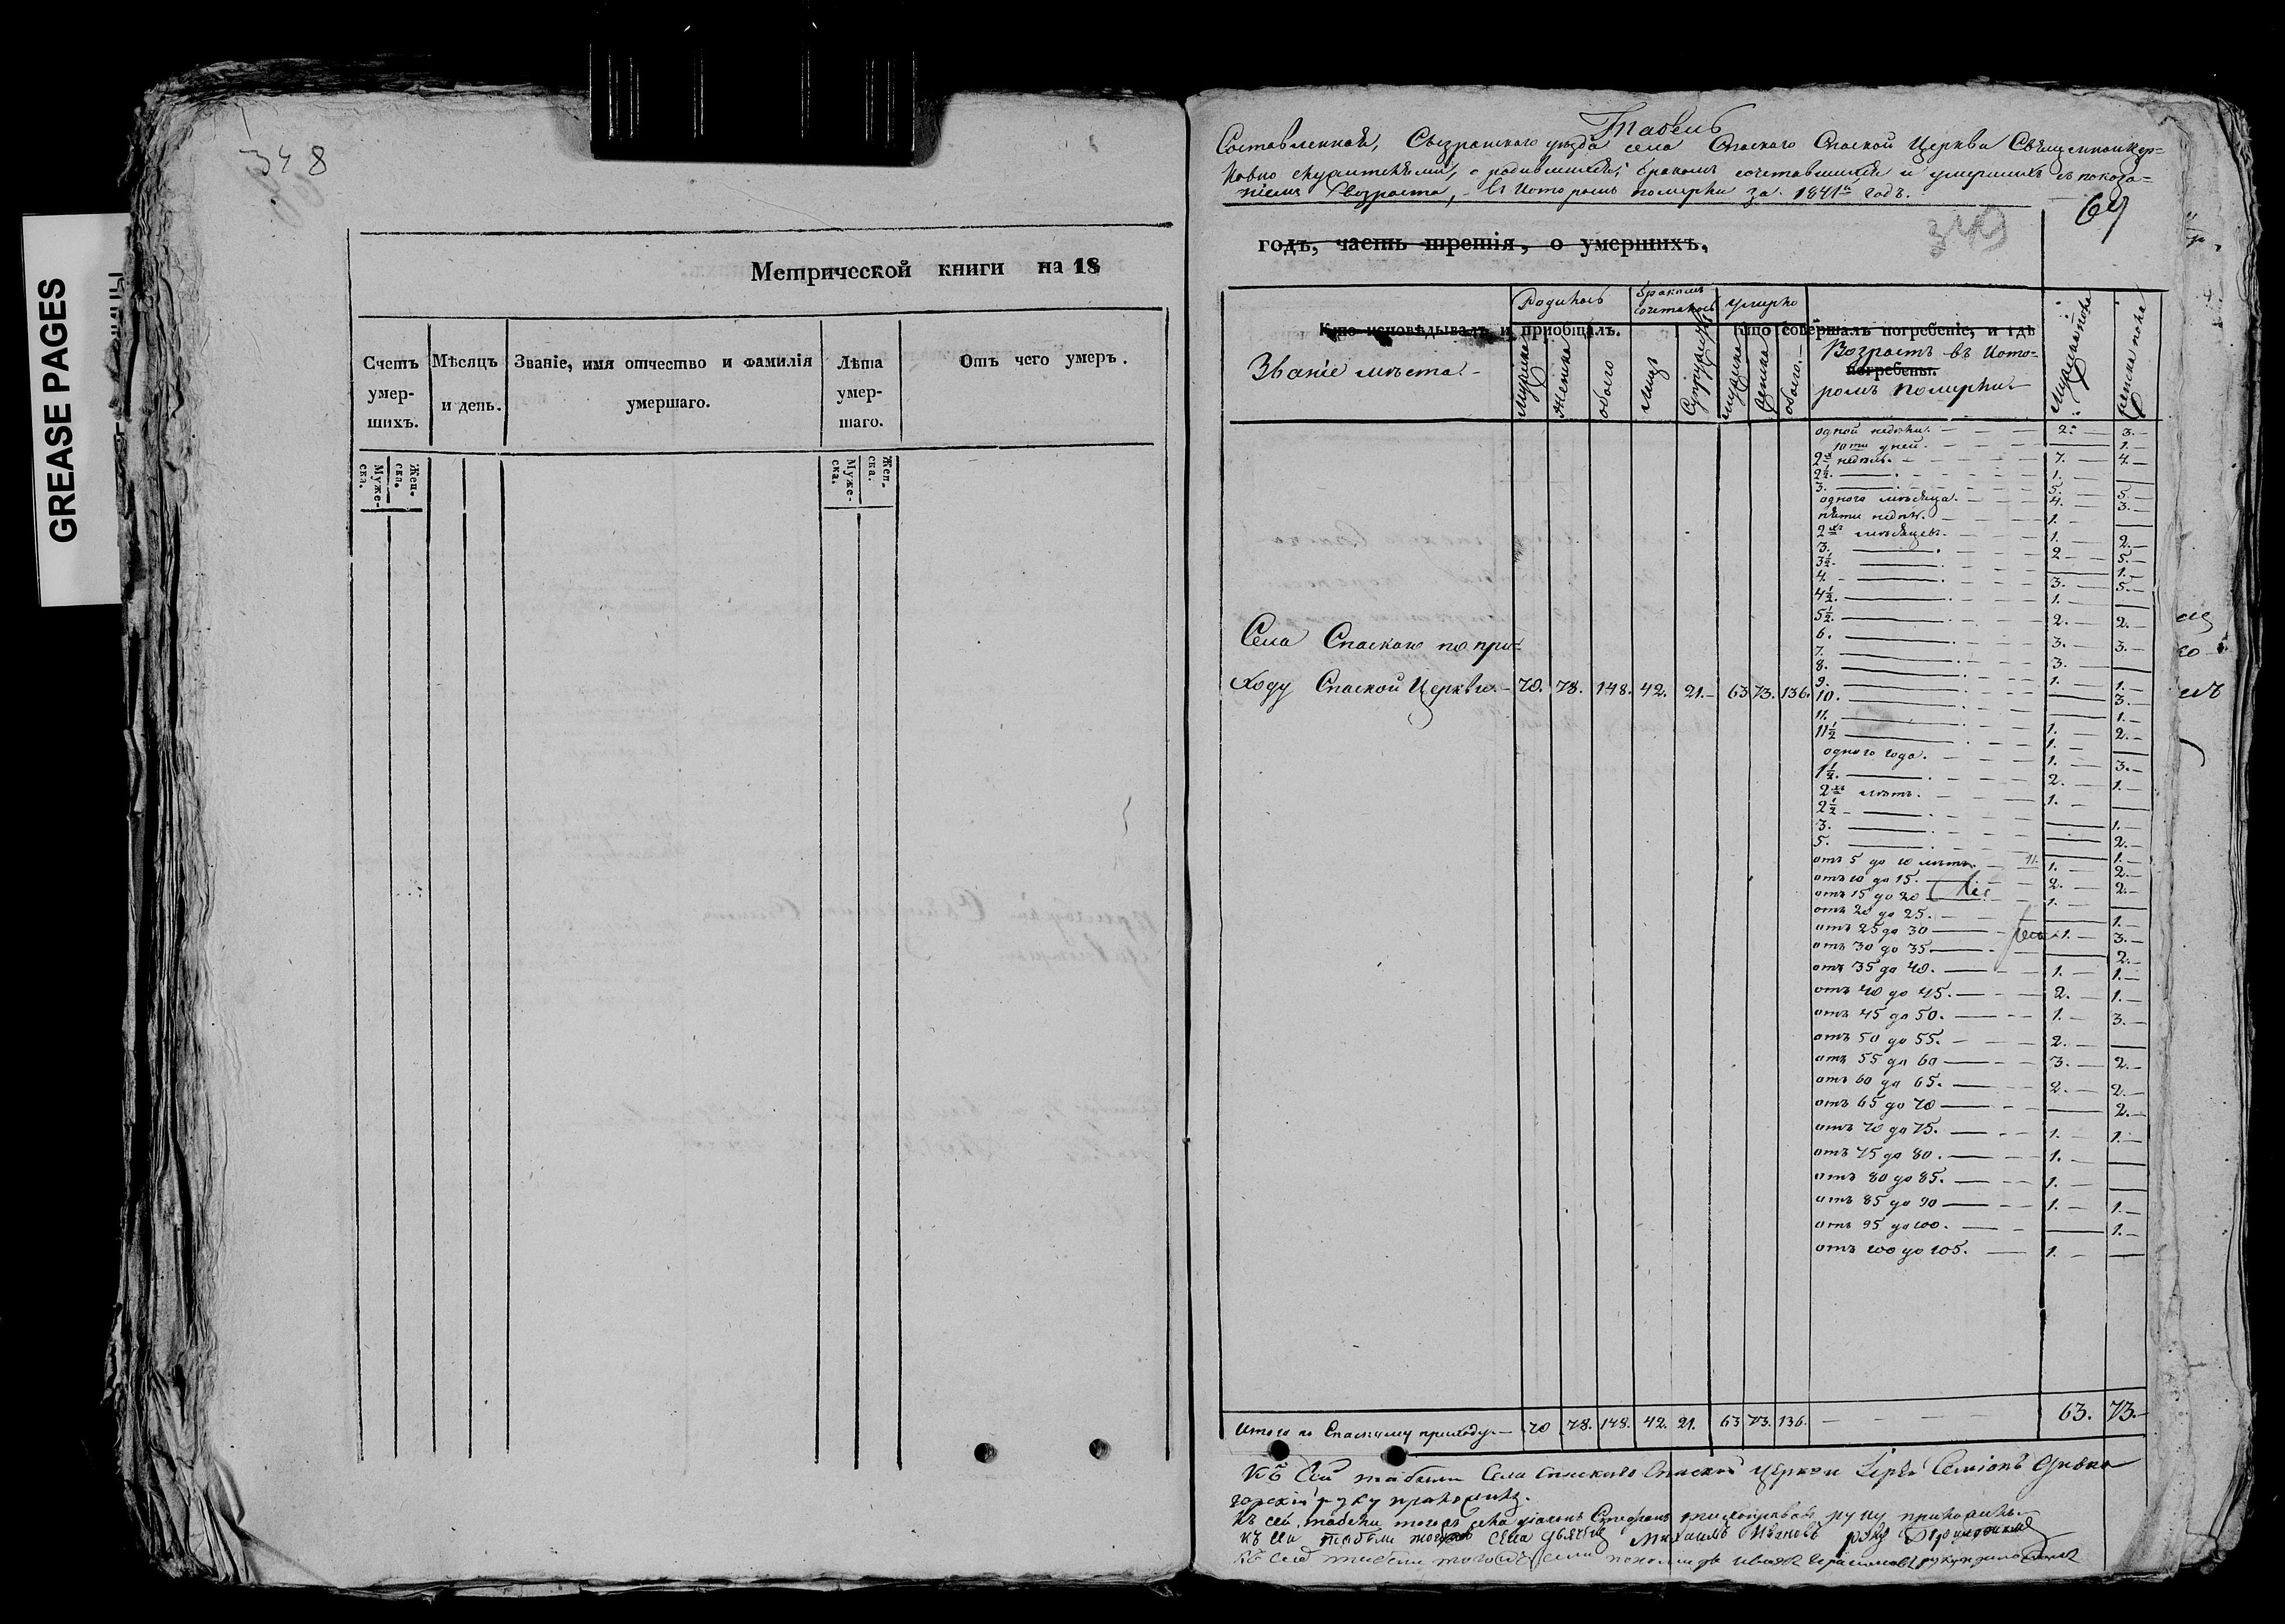 GREASE PAGES
348
Метрической книги на 18
Счетъ умер-шихъ.
Мѣсяцъ и день.
Званіе, имя отчество и фамилія умершаго.
Лѣта умер-шаго.
Отъ чего умеръ.
Муже-ска.
Жен-ска.
Муже-ска.
Жен-ска.
Табель
Составленная, Сызранскаго уѣзда села Спаскаго Спаской Церкви Священноцер=
ковно служителями, о родившихся, бракомъ сочетавшихся и умершихъ съ показа=
ніемъ возраста, въ которомъ померли за 1841й годъ.
69
349
годъ, часть третія, о умершихъ.
Родилось
бракомъ сочеталось
умерло
Кто исповѣдывалъ и пріобщалъ.
Кто совершалъ погребеніе, и гдѣ
погребены.
Званіе мѣста.
мужска
женска
обоего
лицъ
Супружествъ
мужска
женска
обоего
Возрастъ въ кото=
ромъ померли
Мужска пола
женска пола
одной недѣли. 2. 3.
10ти дней. — 1.
2хъ недѣль. 7. 4.
2½. 1.
3. 5. 5.
одного мѣсяца. 4. 3.
пяти недѣль. 1. —
2хъ мѣсяцевъ. 1. 2.
3. 2 5.
3½. — 1.
4. 3. 5.
4½. 1. —
5½. 2. 2.
6. 3. 3.
7. 3. —
8. 1. 1.
9. — 3.
10. — 1.
11. 1. 2.
11½ 1. —
одного года. 1. 3.
1½. 2. 1.
2хъ лѣтъ. 1. —
2½ — 1.
3. — 2.
5. — 1.
отъ 5 до 10 лѣтъ. 1. 2.
отъ 10 до 15. 2. 2.
отъ 15 до 20 1. —
отъ 20 до 25. — 1.
отъ 25 до 30 1. 3.
отъ 30 до 35 — 2.
отъ 35 до 40. 1. 1.
отъ 40 до 45. 2. 1.
отъ 45 до 50. 1. 3.
отъ 50 до 55. 2. —
отъ 55 до 60 3. 2.
отъ 60 до 65. 2. 2.
отъ 65 до 70 — 2.
отъ 70 до 75. 1. 1.
отъ 75 до 80. 1. —
отъ 80 до 85. 1. —
отъ 85 до 90 1. 1.
отъ 95 до 100. — 1.
отъ 100 до 105. 1. —
Села Спаскаго по при=
ходу Спаской Церкви. 70. 78. 148. 42. 21. 63 73. 136.
Итого по Спаскому приходу. 70 78. 148. 42. 21. 63 73. 136. 63. 73.
Къ сей табели Села Спаскаго Спаской Церкви Іерей Симіонъ
руку приложилъ.
Къ сей табели тогожъ села діаконъ Стефанъ руку приложилъ
Къ сей табели тогожъ села дьячекъ Михаилъ Ивановъ руку приложилъ
Къ сей табели тогожъ села пономарь Иванъ Герасимовъ руку приложилъ